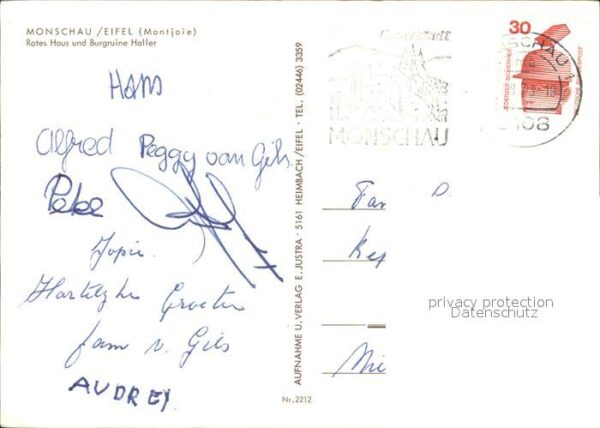 MONSCHAU /EIFEL (Montjoie)
Rotes Haus und Burgruine Haller
Hans
Alfred Peggy van Gils.
Peke
Jopie.
Hartelyke Groeten
fam v. Gils
AUDREY.
AUFNAHME U. VERLAG E. JUSTRA · 5161 HEIMBACH/EIFEL · TEL. (02446) 3359
Nr. 2212
MONSCHAU
30
JEDERZEIT SICHERHEIT
DEUTSCHE BUNDESPOST
MONSCHAU
5108
Fam D.
Kep
privacy protection
Datenschutz